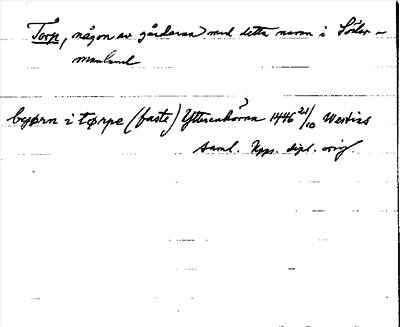 Torp, någon av gårdarna med detta namn i Söder-
manland
?
byørn i tørpe (faste) Ytterenhörna 1446 21/10 Westins
saml. Upps. dipl. orig